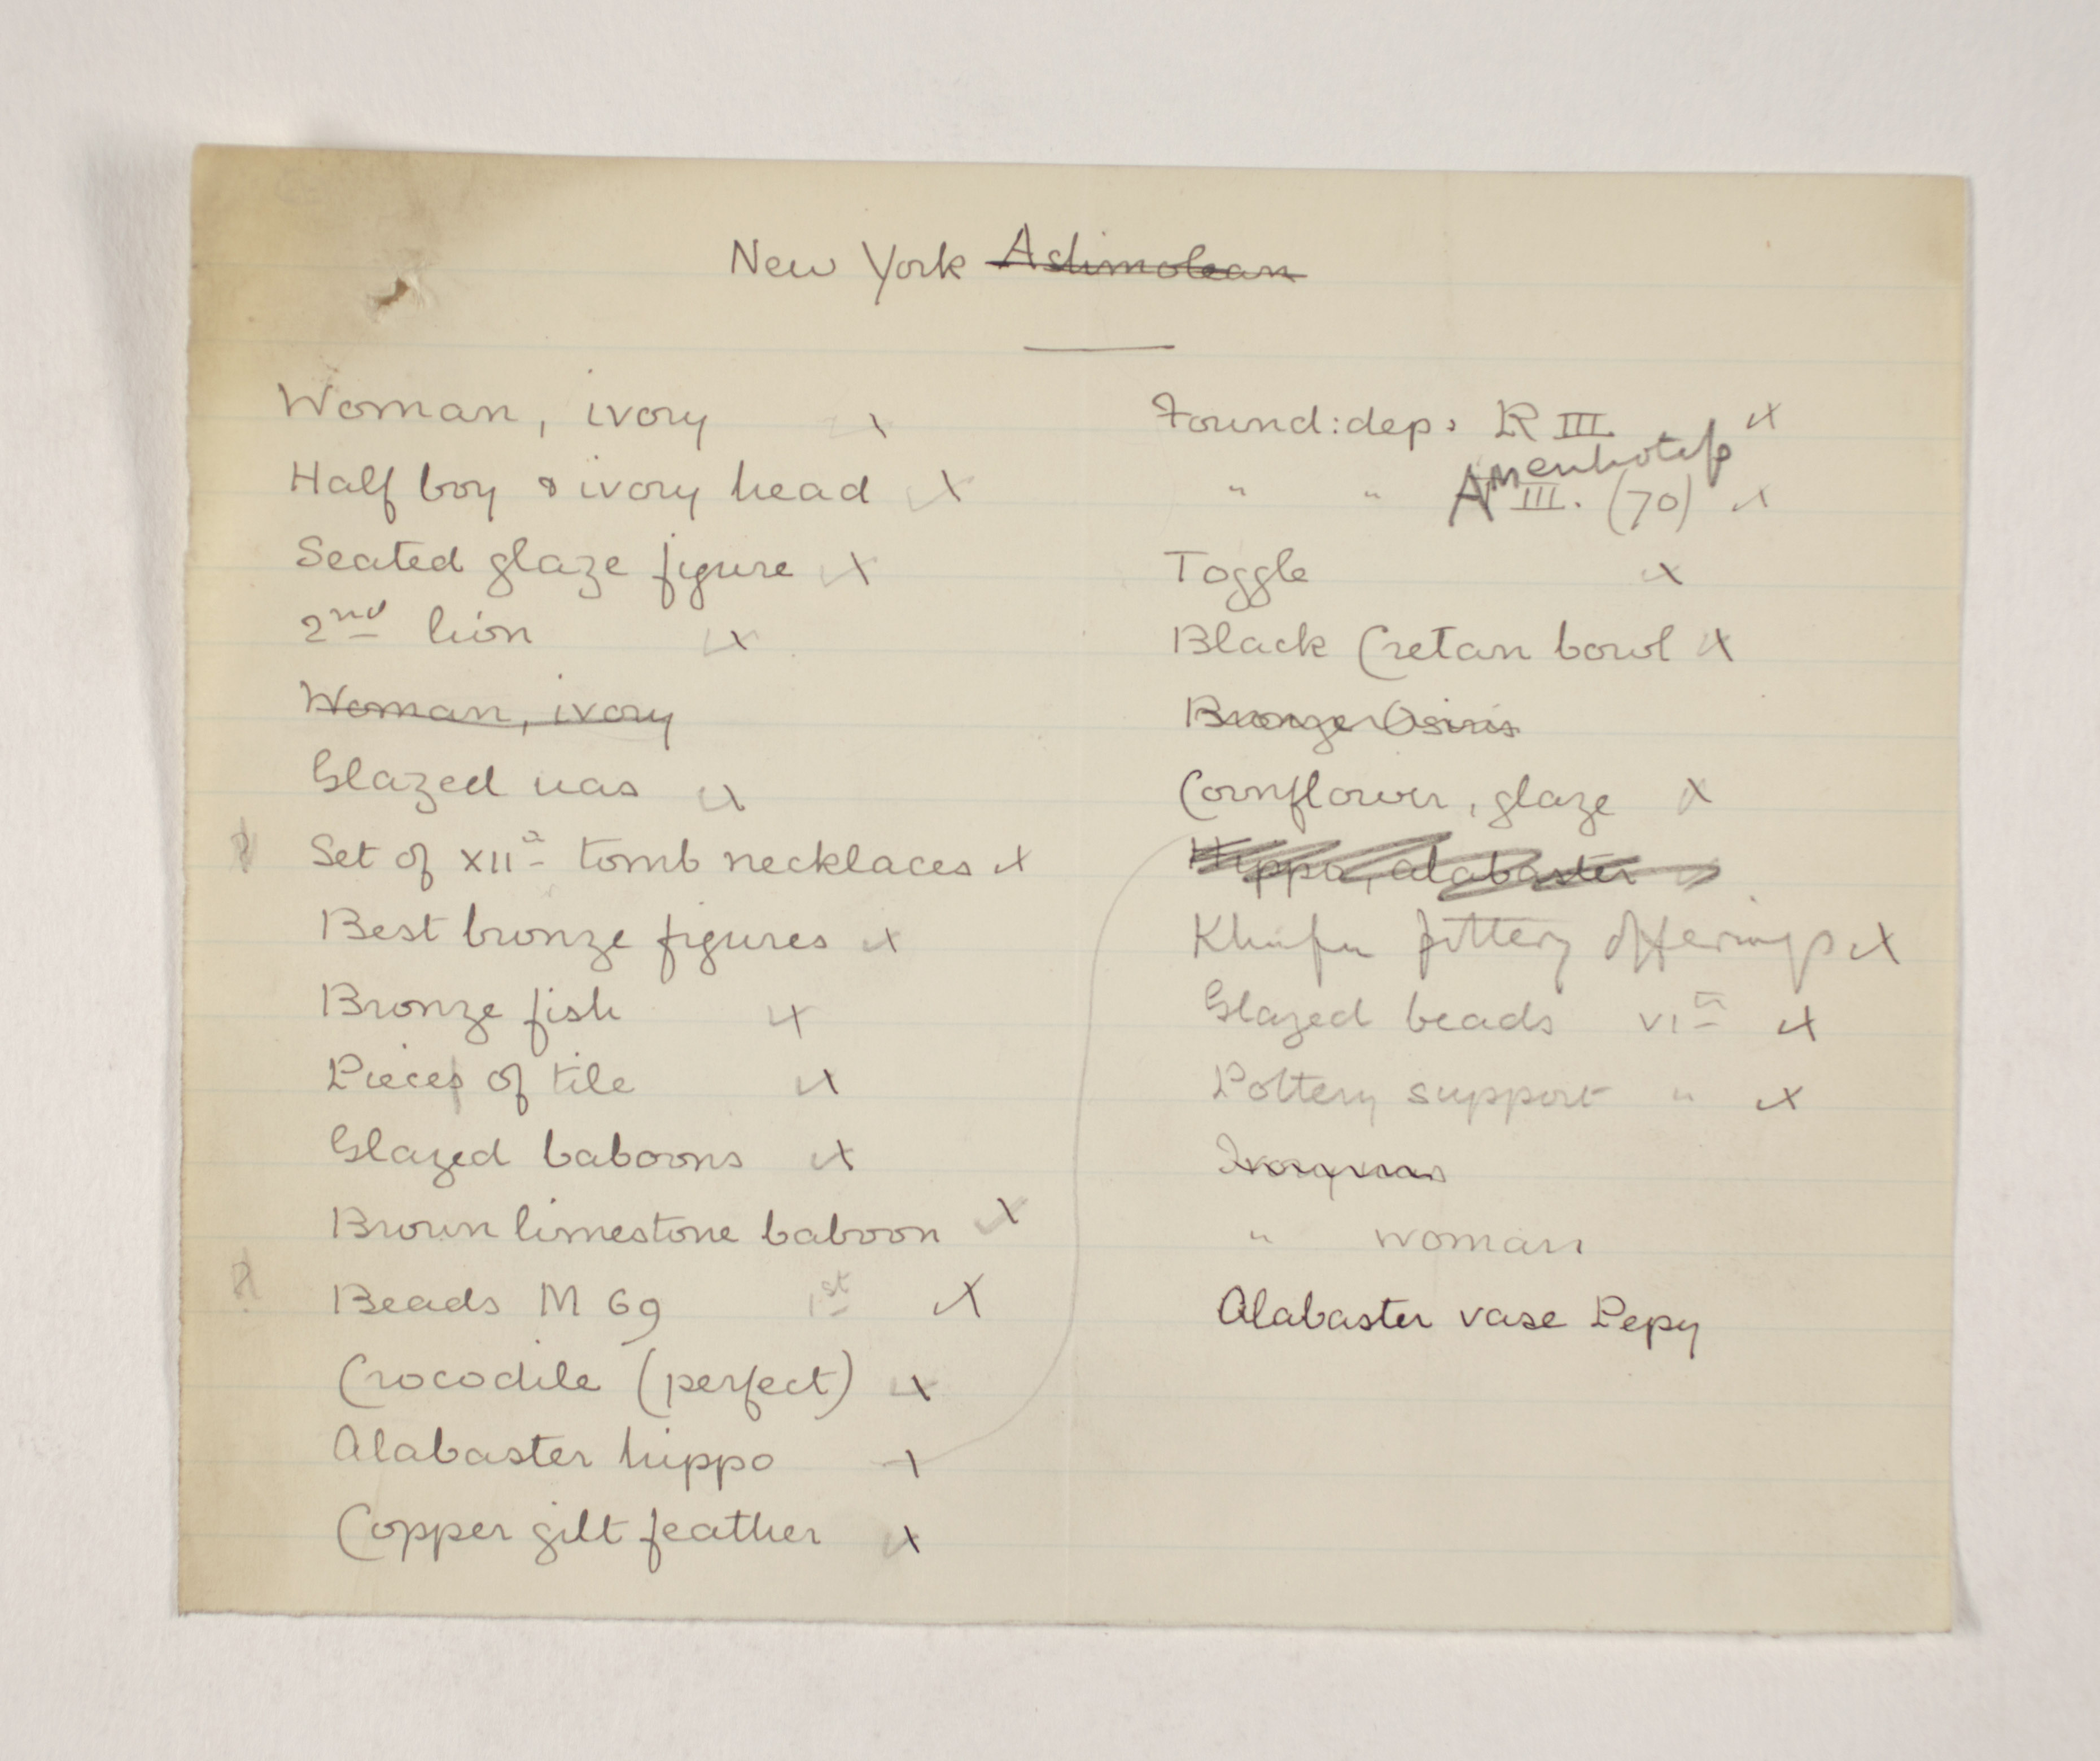 New York Ashmolean
Woman, ivory x
Half boy & ivory head x
Seated glaze figure x
2nd lion x
Woman, ivory
Glazed uas x
? Set of XIIth tomb necklaces x
Best bronze figures x
Bronze fish x
Pieces of tile x
Glazed baboons x
Brown limestone baboon x
? Beads M 69 1st x
Crocodile (perfect) x
Alabaster hippo x
Copper gilt feather x
Found: dep: R III x
" " Amenhotep III. (70) x
Toggle x
Black Cretan bowl x
Bronze Osiris
Cornflower, glaze x
Hippo, alabaster
Khufu pottery offerings x
Glazed beads VIth x
Pottery support " x
Ivory
" woman
Alabaster vase Pepy